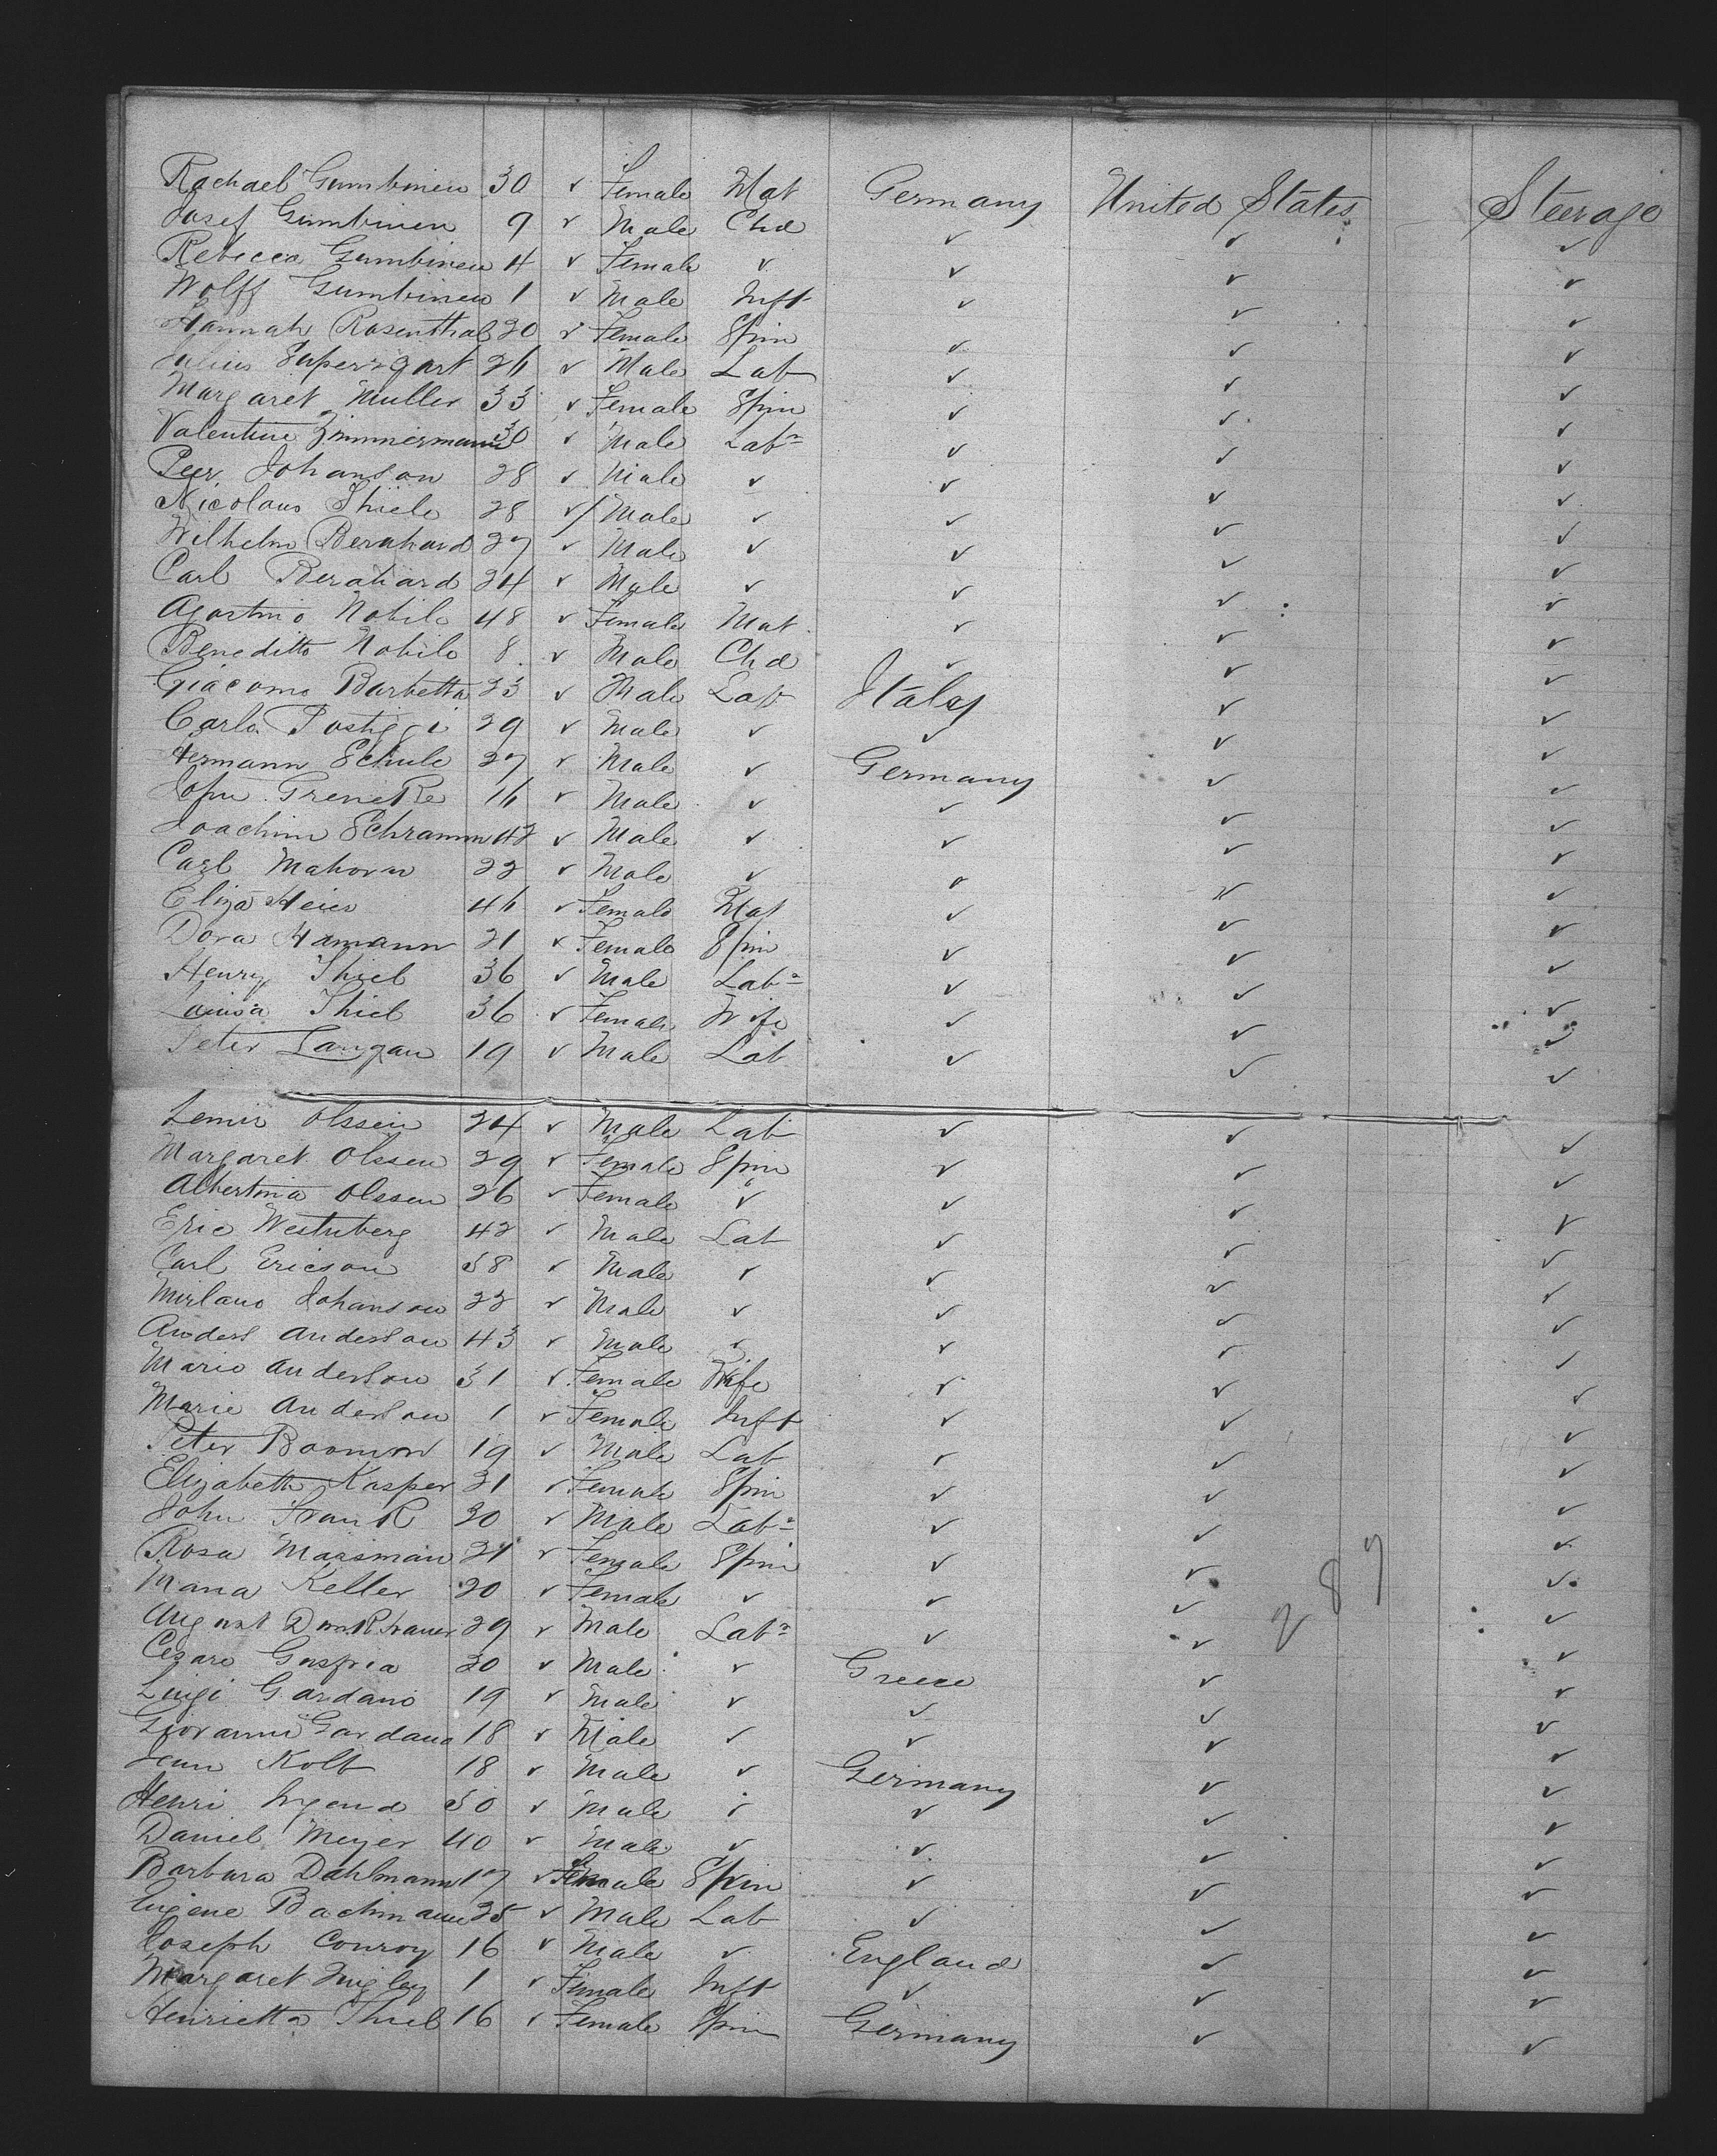 Rachael Gumbinen 30 ✓ Female Mat Germany United States Steerage
Josef Gumbinen 9 ✓ Male Chd ✓ ✓ ✓
Rebecca Gumbinen 4 ✓ Female ✓ ✓ ✓ ✓
Wolff Gumbinen 1 ✓ Male Inft ✓ ✓ ✓
Hannah Rosenthal 20 ✓ Female Spin ✓ ✓ ✓
Julius 26 ✓ Male Lab ✓ ✓ ✓
Margaret Muller 33 ✓ Female Spin ✓ ✓ ✓
Valentine Zimmermann 30 ✓ Male Labr ✓ ✓ ✓
Peer Johanson 28 ✓ Male ✓ ✓ ✓ ✓
Nicolaus Thiele 28 ✓ Male ✓ ✓ ✓ ✓
Wilhelm Bernhard 27 ✓ Male ✓ ✓ ✓ ✓
Carl Bernhard 24 ✓ Male ✓ ✓ ✓ ✓
Agostino Nobile 48 ✓ Female Mat ✓ ✓ ✓
Beneditto Nobile 8 ✓ Male Chd ✓ ✓ ✓
Giacomo Barbetta 23 ✓ Male Lab Italy ✓ ✓
Carlo 29 ✓ Male ✓ ✓ ✓ ✓
Hermann Schule 27 ✓ Male ✓ Germany ✓ ✓
John Greneke 16 ✓ Male ✓ ✓ ✓ ✓
Joachim Schramm 42 ✓ Male ✓ ✓ ✓ ✓
Carl Mahorn 22 ✓ Male ✓ ✓ ✓ ✓
Eliza Heier 46 ✓ Female Mat ✓ ✓ ✓
Dora Hamann 21 ✓ Female Spin ✓ ✓ ✓
Henry Thiel 36 ✓ Male Labr ✓ ✓ ✓
Louisa Thiel 36 ✓ Female Wife ✓ ✓ ✓
Peter Langau 19 ✓ Male Lab ✓ ✓ ✓
Olssen 24 ✓ Male Lab ✓ ✓ ✓
Margaret Olssen 29 ✓ Female Spin ✓ ✓ ✓
Albertina Olssen 26 ✓ Female ✓ ✓ ✓ ✓
Eric Westuberg 42 ✓ Male Lab ✓ ✓ ✓
Carl Ericson 58 ✓ Male ✓ ✓ ✓ ✓
Johanson 22 ✓ Male ✓ ✓ ✓ ✓
Anders Anderson 43 ✓ Male ✓ ✓ ✓ ✓
Marie Anderson 31 ✓ Female Wife ✓ ✓ ✓
Marie Anderson 1 ✓ Female Inft ✓ ✓ ✓
Peter 19 ✓ Male Lab ✓ ✓ ✓
Elizabeth Kasper 21 ✓ Female Spin ✓ ✓ ✓
John Frank 20 ✓ Male Labr ✓ ✓ ✓
Rosa Massman 21 ✓ Female Spin ✓ ✓ ✓
Maria Keller 20 ✓ Female ✓ ✓ ✓ ✓
287
August 29 ✓ Male Labr ✓ ✓ ✓
Cesare 20 ✓ Male ✓ Greece ✓ ✓
Luigi Gardano 19 ✓ Male ✓ ✓ ✓ ✓
Giovanni Gardano 18 ✓ Male ✓ ✓ ✓ ✓
Jean Kolb 18 ✓ Male ✓ Germany ✓ ✓
Henri 50 ✓ Male ✓ ✓ ✓ ✓
Daniel Meyer 40 ✓ Male ✓ ✓ ✓ ✓
Barbara Dahlmann 17 ✓ Female Spin ✓ ✓ ✓
Eugene Bachmann 25 ✓ Male Lab ✓ ✓ ✓
Joseph Conroy 16 ✓ Male ✓ England ✓ ✓
Margaret Quigley 1 ✓ Female Inft ✓ ✓ ✓
Henrietta Thiel 16 ✓ Female Spin Germany ✓ ✓